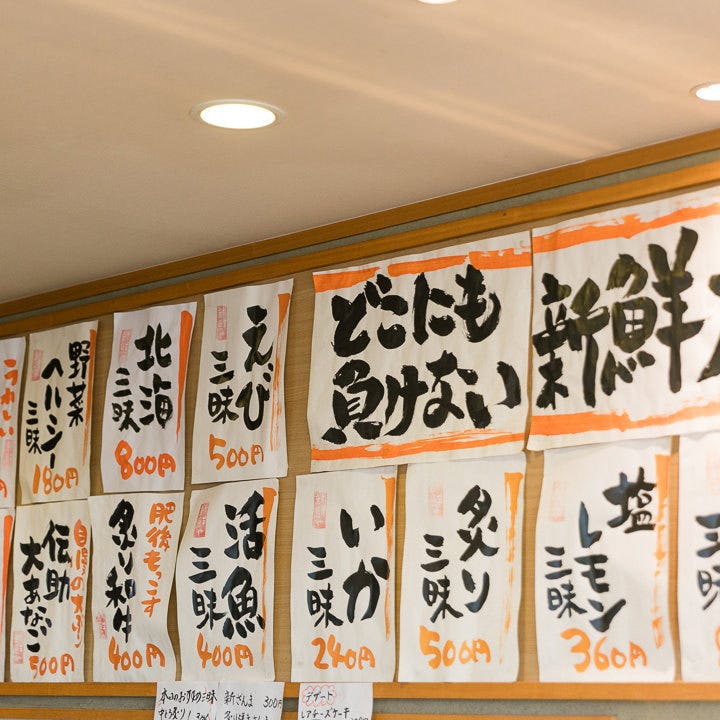 どこにも
負けない
新鮮
えび
三昧
500円
北海
三昧
800円
野菜
ヘルシー
三昧
180円
うれしい
塩
レモン
三昧
360円
炙り
三昧
500円
いか
三昧
240円
活魚
三昧
400円
肥後もっこす
炙り和牛
400円
伝助
大あなご
500円
新さんま 300円
デザート
レアチーズケーキ